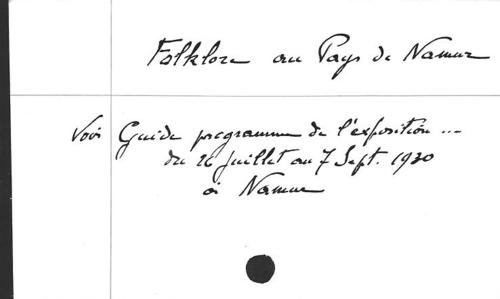 Folklore au Pays de Namur
Voir Guide programme de l'exposition ...
du 26 juillet au 7 Sept. 1930
à Namur